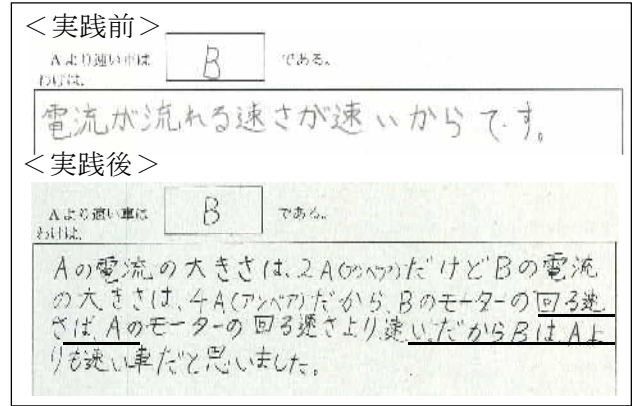 ＜実践前＞
Aより速い車は B である。
わけは、
電流が流れる速さが速いからです。
＜実践後＞
Aより速い車は B である。
わけは、
Aの電流の大きさは、2A(アンペア)だけどBの電流
の大きさは、4A(アンペア)だから、Bのモーターの回る速
さは、Aのモーターの回る速さより、速い。だからBは、Aよ
りも速い車だと思いました。